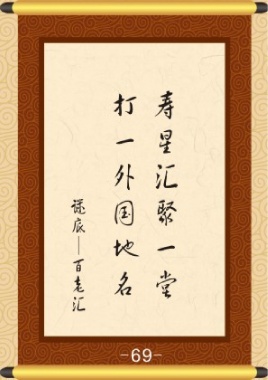 寿星汇聚一堂
打一外国地名
谜底——百老汇
-69-